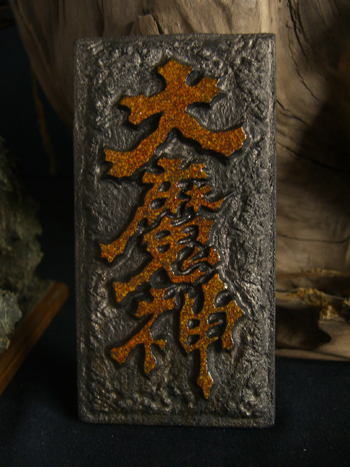 大魔神